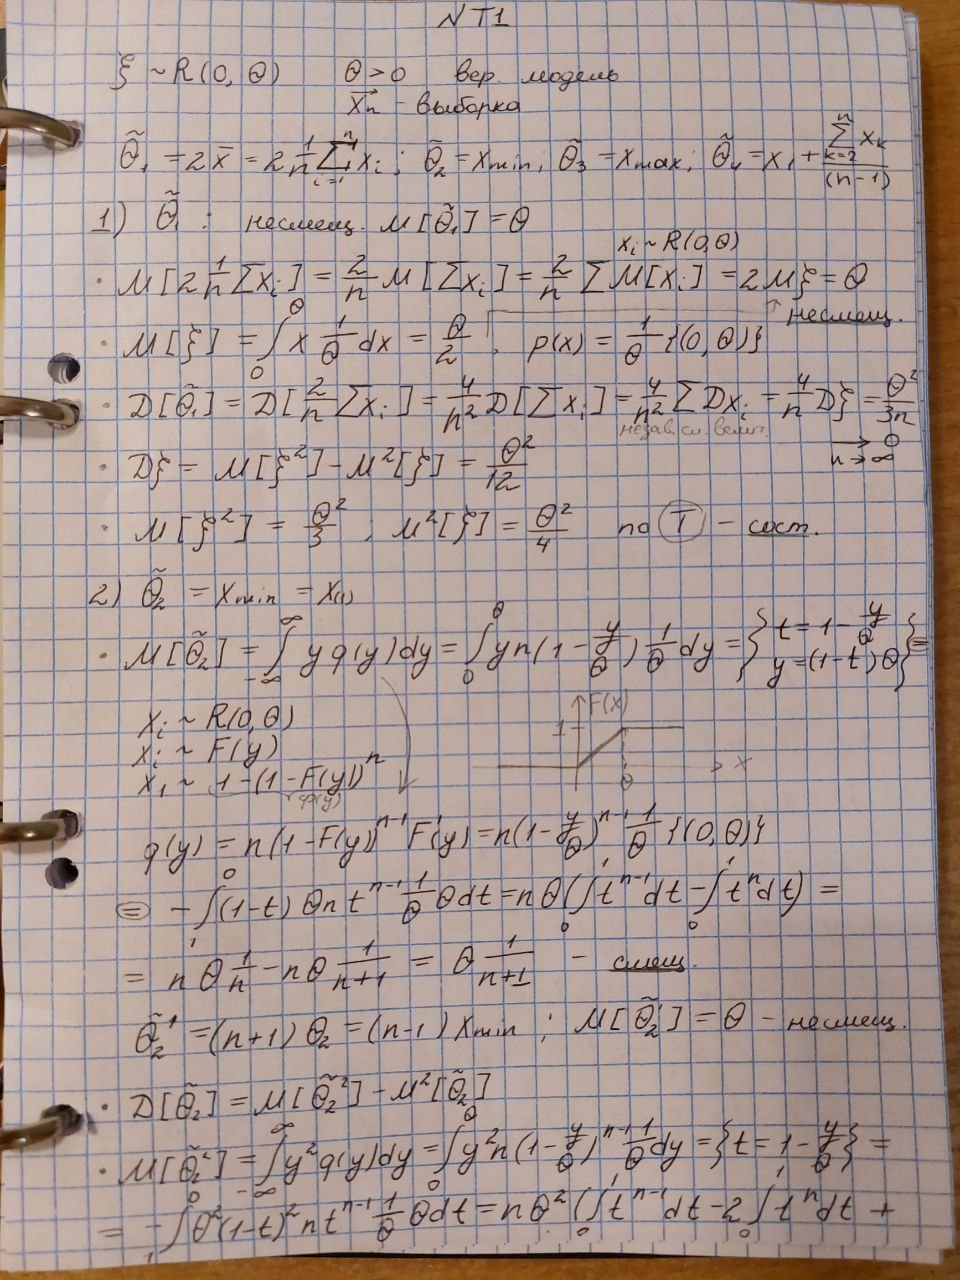 №T1
ξ ~ R(0, θ) θ>0 вер. модель
x⃗n - выборка
θ̃₁ = 2x̄ = 2 1/n Σ_{i=1}^n xᵢ; θ̃₂ = xmin; θ̃₃ = xmax; θ̃₄ = x₁ + Σ_{k=2}^n x_k/(n-1)
1) θ̃₁ : несмещ. M[θ̃₁] = θ
xᵢ ~ R(0,θ)
· M[2 1/n Σxᵢ] = 2/n M[Σxᵢ] = 2/n Σ M[xᵢ] = 2Mξ = θ
несмещ.
· M[ξ] = ∫₀^θ x 1/θ dx = θ/2, p(x) = 1/θ {(0, θ)}
· D[θ̃₁] = D[2/n Σxᵢ] = 4/n² D[Σxᵢ] = 4/n² ΣDxᵢ = 4/n Dξ = θ²/3n
незав. сл. велич. → 0
n→∞
· Dξ = M[ξ²] - M²[ξ] = θ²/12
· M[ξ²] = θ²/3 ; M²[ξ] = θ²/4 по T - сост.
2) θ̃₂ = xmin = x₍₁₎
· M[θ̃₂] = ∫_{-∞}^{∞} y φ(y)dy = ∫₀^θ y n(1 - y/θ) 1/θ dy = {t = 1 - y/θ
y = (1-t)θ} =
xᵢ ~ R(0,θ) F(x)
xᵢ ~ F(y) 1 x
x₁ ~ 1-(1-F(y))ⁿ θ
φ(y)
φ(y) = n(1-F(y))ⁿ⁻¹ F'(y) = n(1 - y/θ)ⁿ⁻¹ 1/θ {(0, θ)}
⊜ -∫₁⁰ (1-t) θ n tⁿ⁻¹ 1/θ θdt = nθ(∫₀¹ tⁿ⁻¹dt - ∫₀¹ tⁿdt) =
= nθ 1/n - nθ 1/(n+1) = θ 1/(n+1) - смещ.
θ̃₂' = (n+1) θ₂ = (n-1) xmin ; M[θ̃₂'] = θ - несмещ.
· D[θ̃₂] = M[θ̃₂²] - M²[θ̃₂]
· M[θ̃₂²] = ∫_{-∞}^{∞} y² φ(y)dy = ∫₀^θ y² n(1 - y/θ)ⁿ⁻¹ 1/θ dy = {t = 1 - y/θ} =
= -∫₁⁰ θ²(1-t)² n tⁿ⁻¹ 1/θ θdt = nθ²(∫₀¹ tⁿ⁻¹dt - 2∫₀¹ tⁿdt +